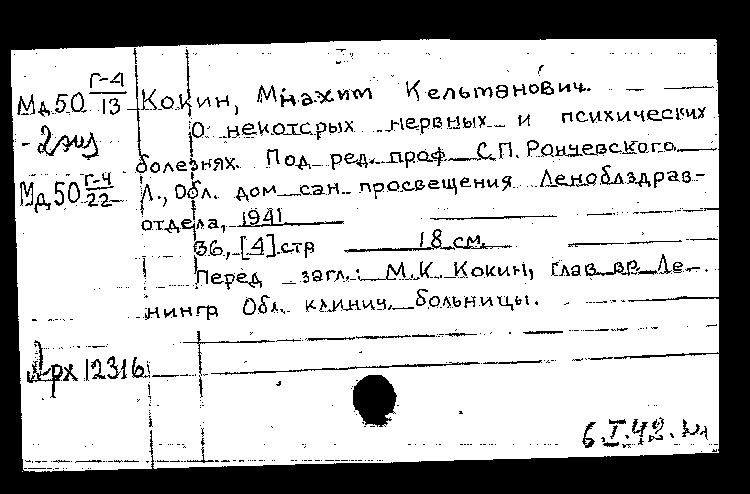 Мд50 Г-4/13 Кокин, Мнахим Кельманович.
О некоторых нервных и психических
- 2 экз
болезнях. Под ред. проф С.П. Рончевского.
Мд50 Г-4/22 Л., Обл. дом сан. просвещения Леноблздрав-
отдела, 1941
36, [4] стр 18 см.
Перед загл.: М.К. Кокин, глав. вр. Ле-
нингр Обл. клинич. больницы.
Арх 12316
6.I.42.